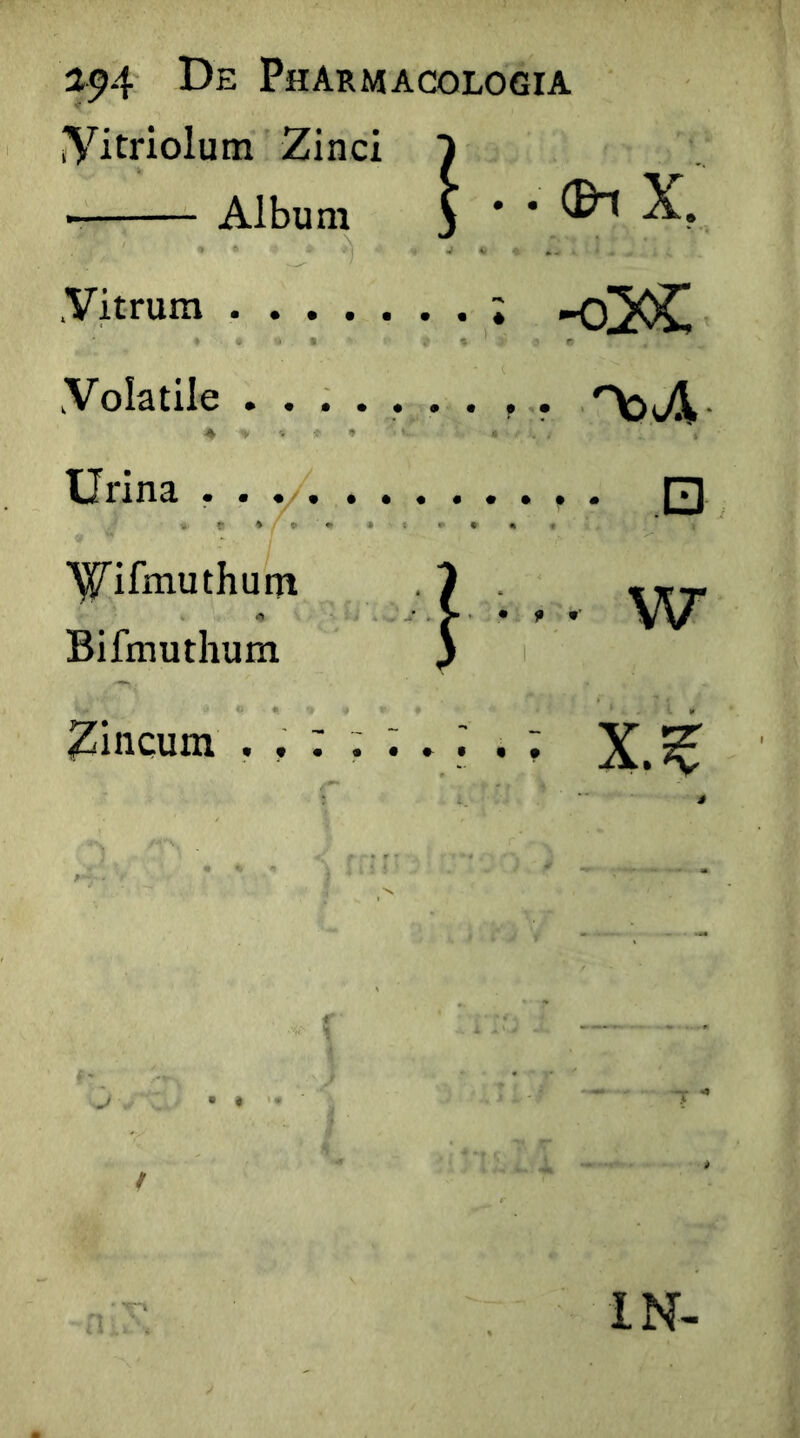 294 De Pharmacologia
Vitriolum Zinci
——— Album } . . X.
Vitrum . . . . . . . .
Volatile . . . . . . . . . .
Urina . . . . . . . . . . . . . ⊡
Wiſmuthum
Biſmuthum } . . . W
Zincum . . . . . . . . . X.
IN-